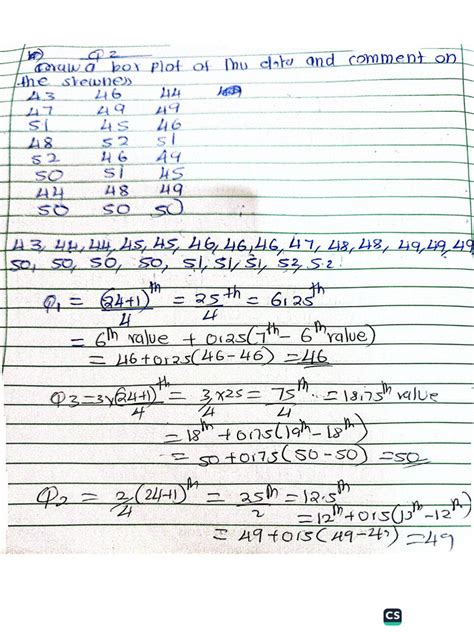 Q2
Draw a box plot of the data and comment on
the skewness
43 46 44
47 49 49
51 45 46
48 52 51
52 46 49
50 51 45
44 48 49
50 50 50
43, 44, 44, 45, 45, 46, 46, 46, 47, 48, 48, 49, 49, 49
50, 50, 50, 50, 51, 51, 51, 52, 52.
Q1 = (24+1)th/4 = 25th/4 = 6.25th
= 6th value + 0.25(7th - 6th value)
= 46 + 0.25(46-46) = 46
Q3 = 3x(24+1)th/4 = 3/4 x 25 = 75th/4 = 18.75th value
= 18th + 0.75(19th - 18th)
= 50 + 0.75(50-50) = 50
Q2 = 2/4 (24+1)th = 25th/2 = 12.5th
= 12th + 0.5(13th - 12th)
= 49 + 0.5(49-49) = 49
CS